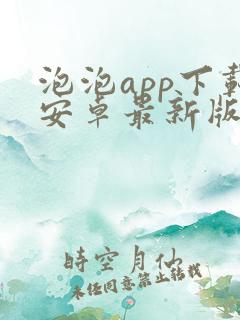 泡泡app下载
安卓最新版
時空月仙
未经同意禁止转载